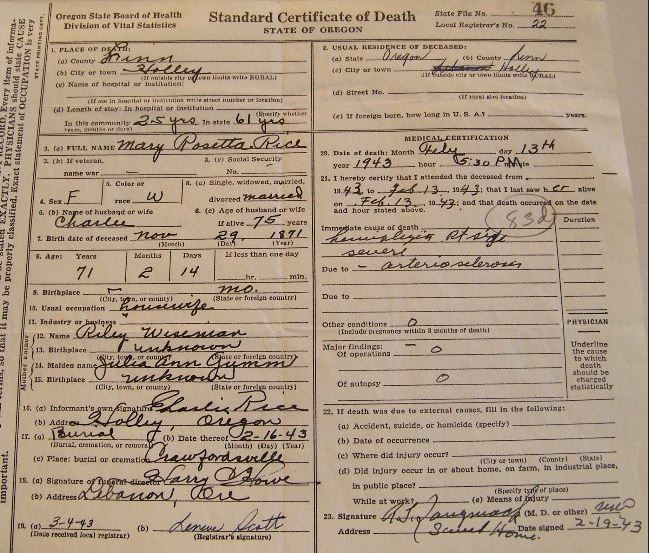 Oregon State Board of Health
Division of Vital Statistics
Standard Certificate of Death
STATE OF OREGON
State File No. 46
Local Registrar's No. 22
1. PLACE OF DEATH:
(a) County Linn
(b) City or town Holley
(If outside city or town limits write RURAL)
(c) Name of hospital or institution:
(If not in hospital or institution write street number or location)
(d) Length of stay: In hospital or institution
(Specify whether
In this community 25 yrs In state 61 yrs
years, months or days)
3. (a) FULL NAME Mary Rosetta Rice
3. (b) If veteran,
name war —
3. (c) Social Security
No. —
4. Sex F
5. Color or
race W
6. (a) Single, widowed, married,
divorced married
6. (b) Name of husband or wife
Charlie
6. (c) Age of husband or wife
if alive 75 years
7. Birth date of deceased Nov 29 1871
(Month) (Day) (Year)
8. Age: Years Months Days If less than one day
71 2 14 hr. min.
9. Birthplace — mo.
(City, town, or county) (State or foreign country)
10. Usual occupation housewife
11. Industry or business
12. Name Riley Wiseman
13. Birthplace unknown
(City, town, or county) (State or foreign country)
14. Maiden name Julia Ann Gumm
15. Birthplace unknown
(City, town, or county) (State or foreign country)
16. (a) Informant's own signature Charlie Rice
(b) Address Holley, Oregon
17. (a) Burial (b) Date thereof 2-16-43
(Burial, cremation, or removal) (Month) (Day) (Year)
(c) Place: burial or cremation Crawfordsville
18. (a) Signature of funeral director Harry C Howe
(b) Address Lebanon, Ore
19. (a) 3-4-43 (b) Scott
(Date received local registrar) (Registrar's signature)
2. USUAL RESIDENCE OF DECEASED:
(a) State Oregon (b) County Linn
(c) City or town Holley
(If outside city or town limits write RURAL)
(d) Street No.
(If rural give location)
(e) If foreign born, how long in U. S. A.? years.
MEDICAL CERTIFICATION
20. Date of death: Month Feby day 13th
year 1943 hour 5:30 PM
21. I hereby certify that I attended the deceased from
1943 to Feb 13 1943; that I last saw her alive
on Feb. 13 1943; and that death occurred on the date
and hour stated above.
83d
Duration
Immediate cause of death
hemiplegia Rt side
severe
Due to — arteriosclerosis
Due to
Other conditions 0
(Include pregnancy within 3 months of death)
Major findings: —
Of operations 0
Of autopsy 0
PHYSICIAN
Underline
the cause
to which
death
should be
charged
statistically
22. If death was due to external causes, fill in the following:
(a) Accident, suicide, or homicide (specify)
(b) Date of occurrence
(c) Where did injury occur?
(City or town) (County) (State)
(d) Did injury occur in or about home, on farm, in industrial place,
in public place?
(Specify type of place)
While at work? (e) Means of injury
23. Signature (M. D. or other)
Address Sweet Home. Date signed 2-19-43